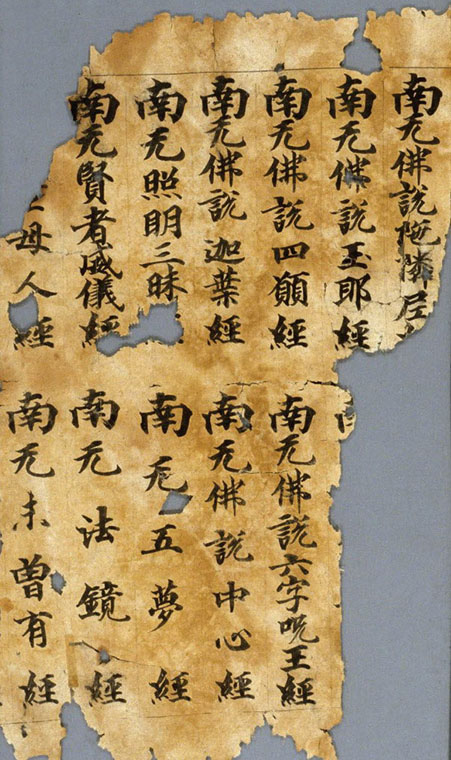 南无佛說陁隣尼
南无佛說玉耶經
南无佛說四願經
南无佛說迦葉經
南无照明三昧
南无賢者威儀經
母人經
南无佛說六字呪王經
南无佛說中心經
南无五夢經
南无法鏡經
南无未曾有經